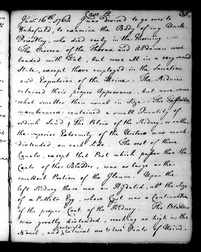 Case 58
Jan.y 16th 1768 I was desired to go over to
Wakefield, to examine the Body of my Uncle
Priestley, who died early in the Morning.
The Viscera of the Thorax and Abdomen were
loaded with Fat, but were all in a very sound
State, except those employed in the secretion
and Expulsion of the Urine. The Kidnies
retained their proper Appearance, but were some-
what smaller than usual in size. The
membranosa contained a small Quantity of
which Urine. The Pelvis of the Kidney, or rather
the superior Extremity of the Urethra was much
distended, on each side. The rest of these
Canals, except that Part which passes thro' the
Coats of the Bladder, was as large as the
smallest Portion of the Ileum. Upon the
left Kidney there was an Hydatid, abt the size
of a Pullets Egg, whose Coat was a Continuation
of the proper Coat of the Kidney. The Bladder
was greatly distended, reaching as high as the
Navel, and contained several Pints of Urine.